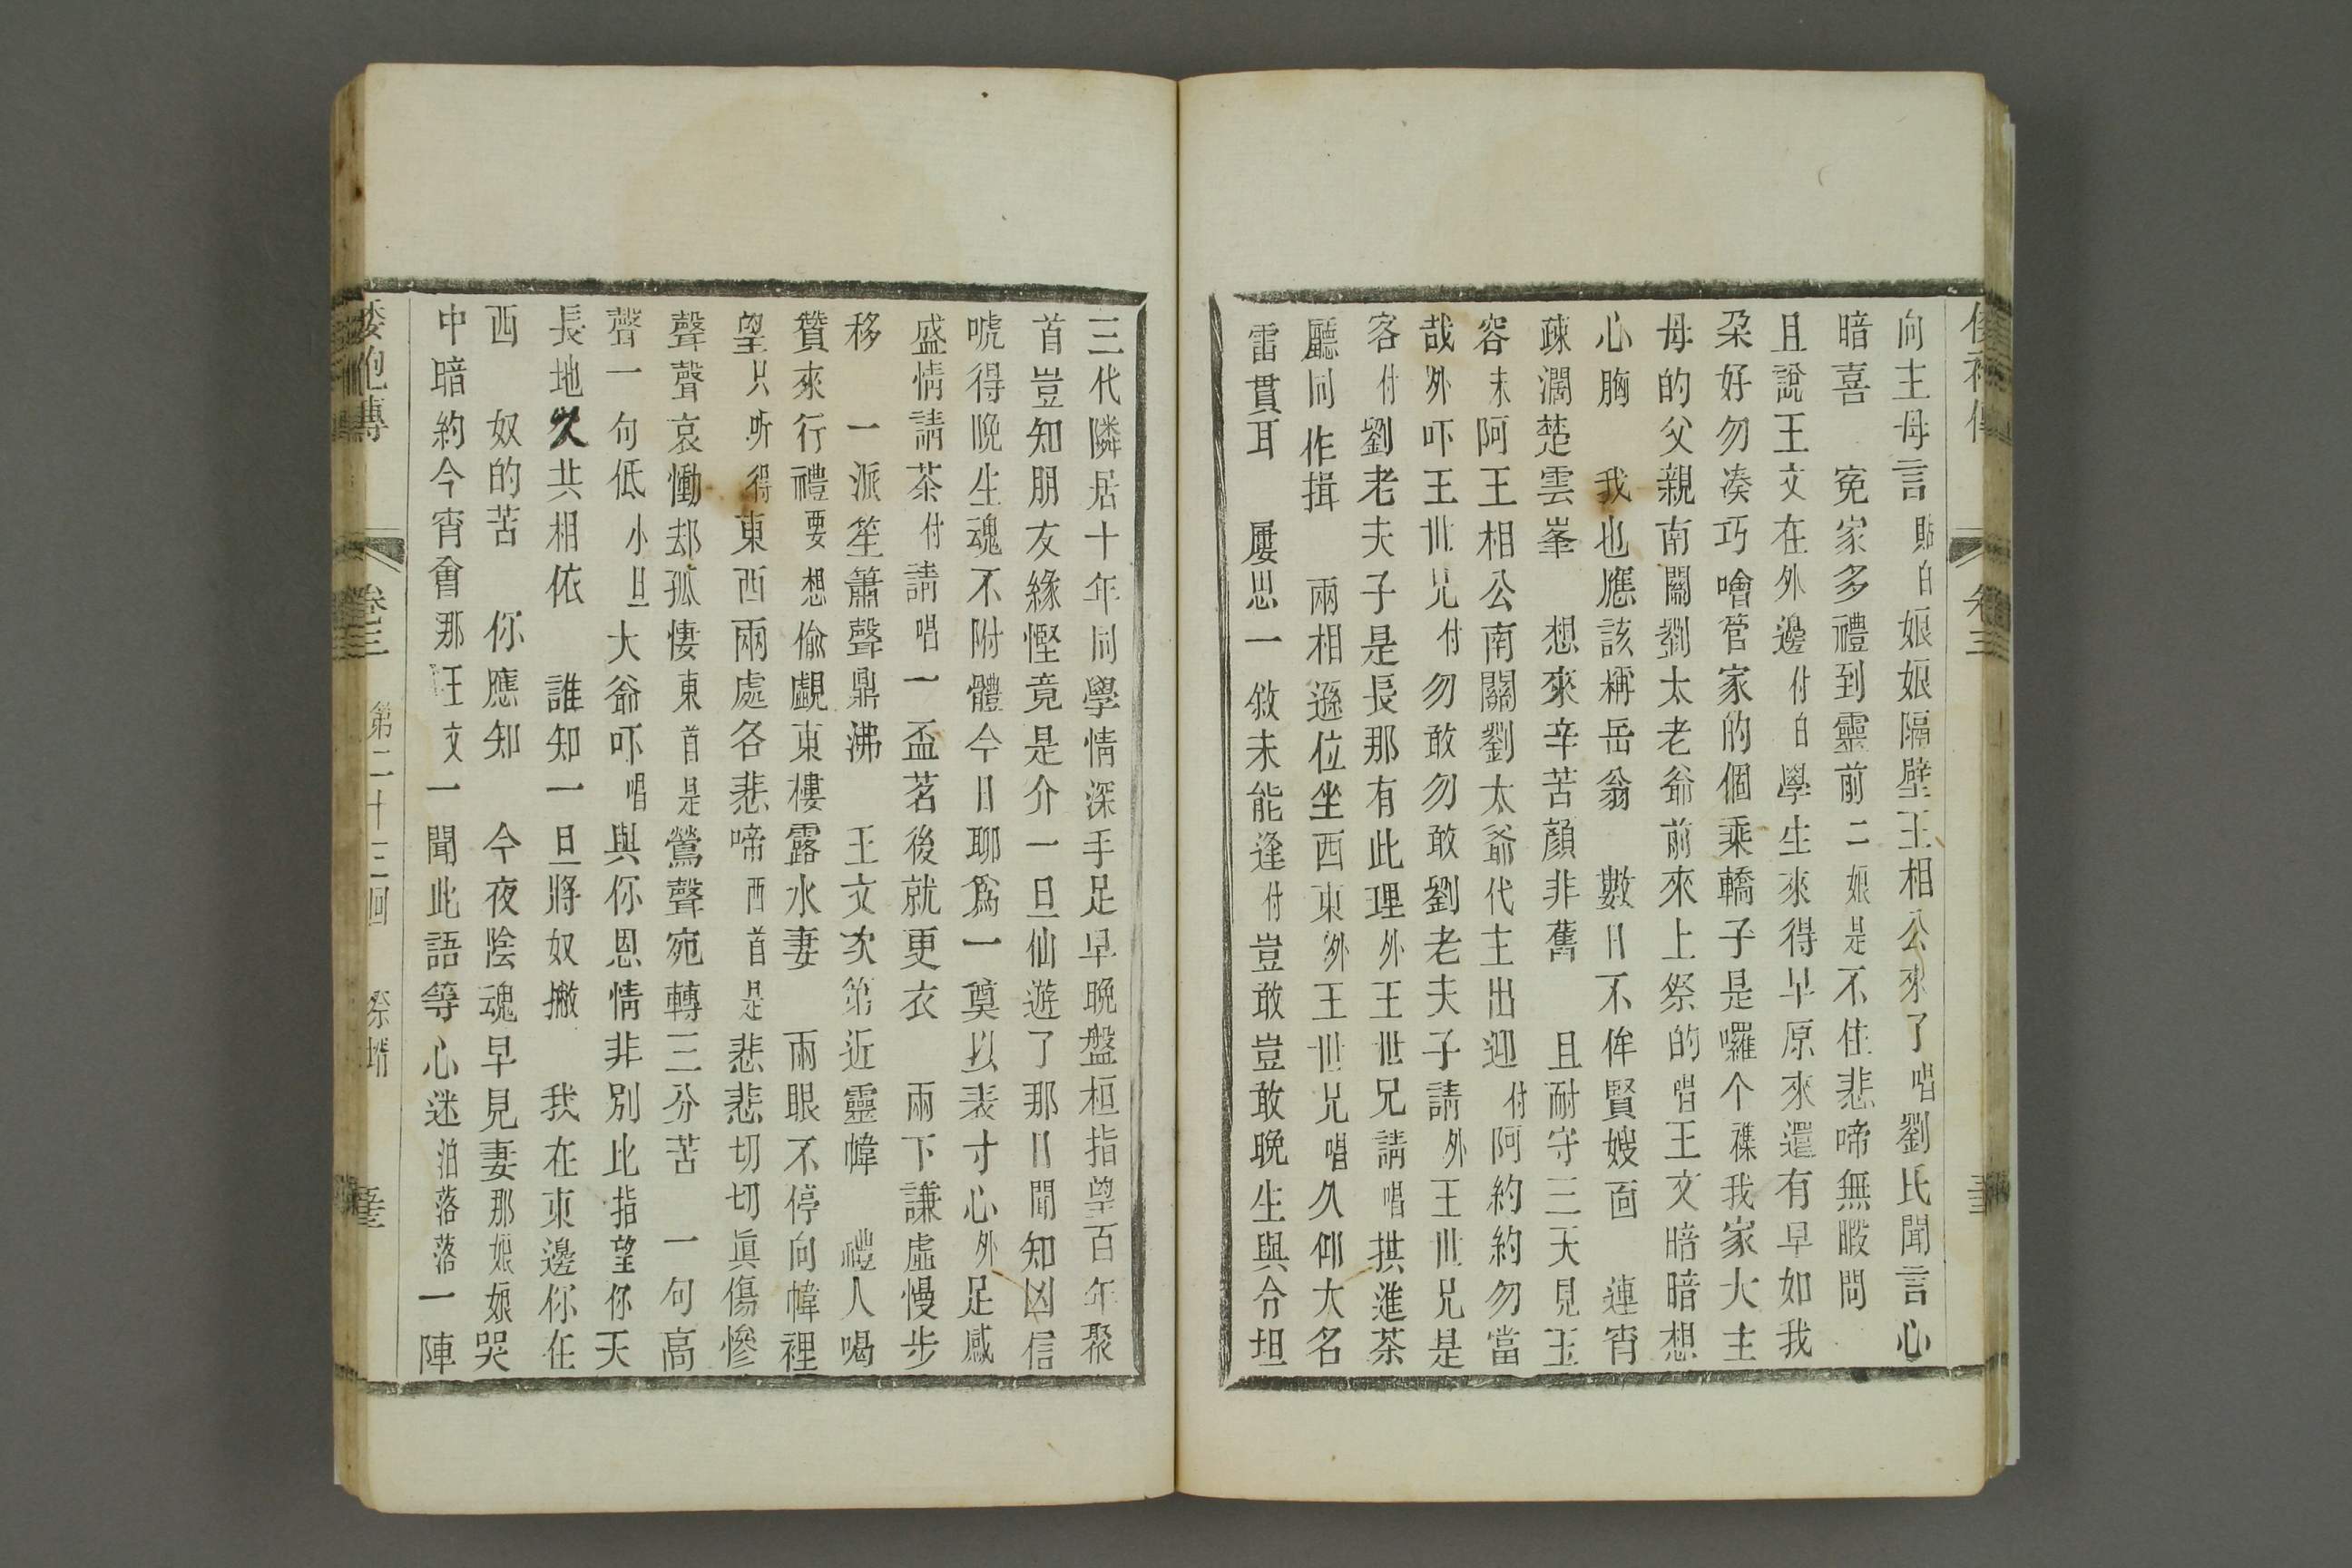 向主母言貼白娘娘隔壁王相公來了唱劉氏聞言心
暗喜　寃家多禮到靈前二娘是不住悲啼無暇問
且說王文在外邊付白學生來得早原來還有早如我
朶好勿凑巧噲管家的個乘轎子是囉个襍我家大主
母的父親南關劉太老爺前來上祭的唱王文暗暗想
心胸　我也應該稱岳翁　數日不侔賢嫂面　連宵
疎濶楚雲峯　想來辛苦顔非舊　且耐守三天見玉
容末阿王相公南關劉太爺代主出迎付阿約約勿當
哉外吓王世兄付勿敢勿敢劉老夫子請外王世兄是
客付劉老夫子是長那有此理外王世兄請唱拱進茶
廳同作揖　兩相遜位坐西東外王世兄唱久仰大名
雷貫耳　屢思一敘未能逢付豈敢豈敢晚生與令坦
三代隣居十年同學情深手足早晚盤桓指望百年聚
首豈知朋友緣慳竟是介一旦仙遊了那日聞知凶信
唬得晚生魂不附體今日聊爲一奠以表寸心外足感
盛情請茶付請唱一盃茗後就更衣　兩下謙虛慢步
移　一派笙簫聲鼎沸　王文次第近靈幃　禮人喝
贊來行禮要想偷覷東樓露水妻　兩眼不停向幃裡
望只听得東西兩處各悲啼西首是悲悲切切眞傷慘
聲聲哀慟却孤悽東首是鶯聲宛轉三分苦　一句高
聲一句低小旦大爺吓唱與你恩情非別比指望你天
長地久共相依　誰知一旦將奴撇　我在東邊你在
西　奴的苦　你應知　今夜陰魂早見妻那娘娘哭
中暗約今宵會那王文一聞此語等心迷泊落落一陣
倭袍傳　卷三　第二十三回　祭壻